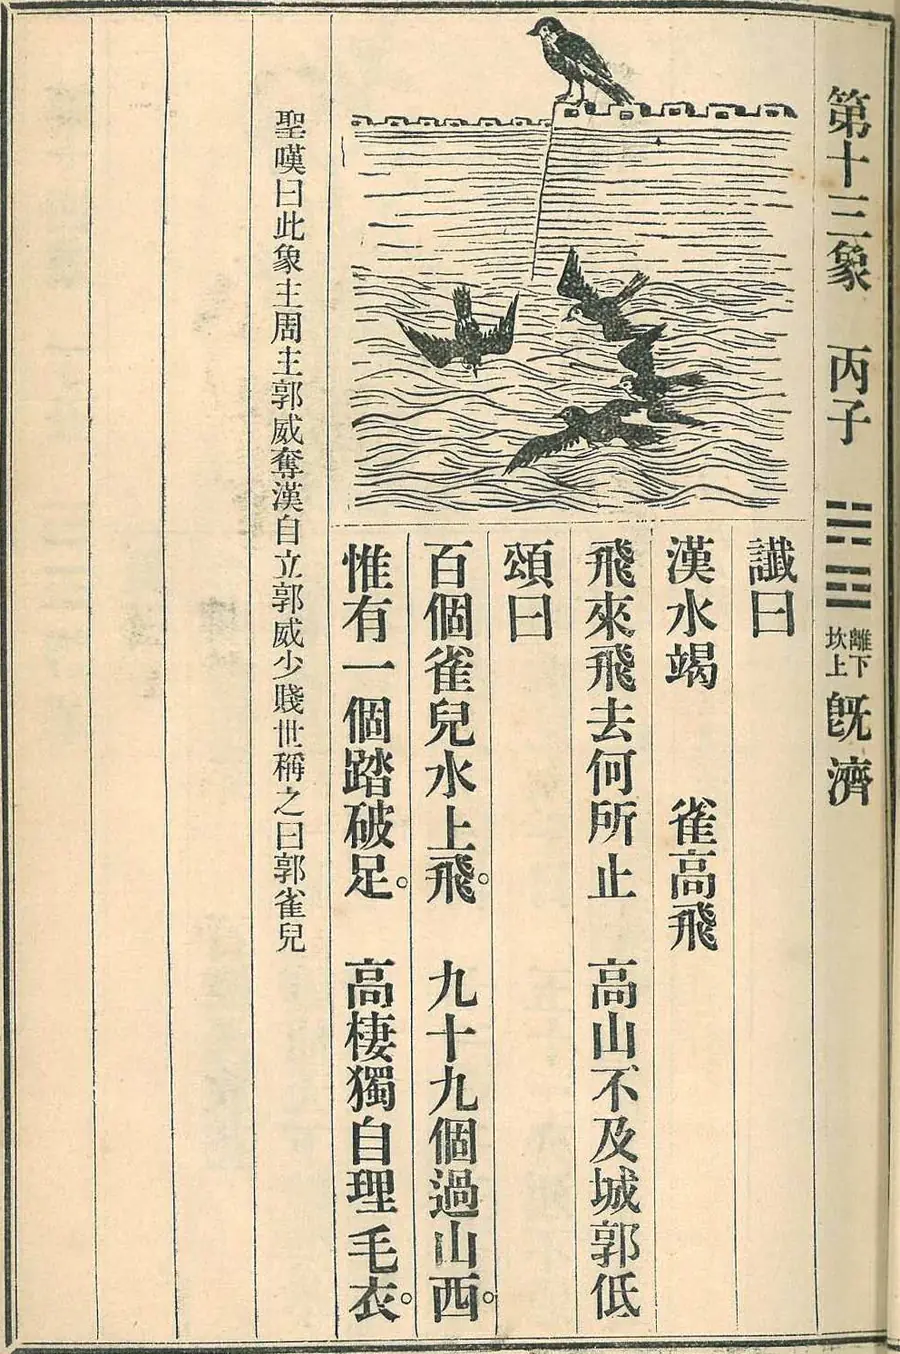 第十三象 丙子 ䷾ 離下坎上 旣濟
讖曰
漢水竭 雀高飛
飛來飛去何所止 高山不及城郭低
頌曰
百個雀兒水上飛。 九十九個過山西。
惟有一個踏破足。 高棲獨自理毛衣。
聖嘆曰此象主周主郭威奪漢自立郭威少賤世稱之曰郭雀兒